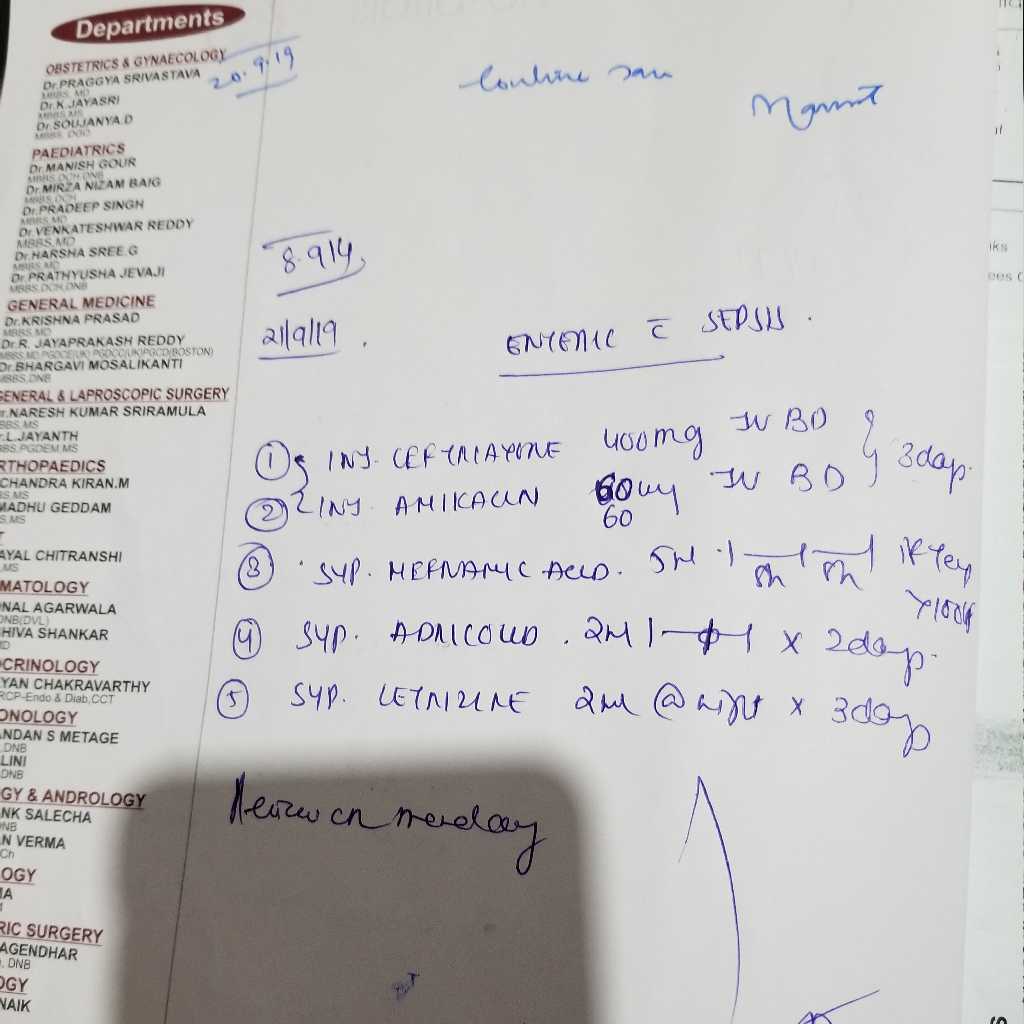 Departments
OBSTETRICS & GYNAECOLOGY
Dr.PRAGGYA SRIVASTAVA
MBBS, MD
Dr.K.JAYASRI
MBBS,MS
Dr.SOUJANYA.D
MBBS, DGO
PAEDIATRICS
Dr.MANISH GOUR
MBBS,DCH,DNB
Dr.MIRZA NIZAM BAIG
MBBS,DCH
Dr.PRADEEP SINGH
MBBS,MD
Dr.VENKATESHWAR REDDY
MBBS,MD
Dr.HARSHA SREE.G
MBBS,MD
Dr.PRATHYUSHA JEVAJI
MBBS,DCH,DNB
GENERAL MEDICINE
Dr.KRISHNA PRASAD
MBBS,MD
Dr.R. JAYAPRAKASH REDDY
MBBS,MD,PGDCE(UK),PGDCC(UK)PGCD(BOSTON)
Dr.BHARGAVI MOSALIKANTI
MBBS,DNB
GENERAL & LAPROSCOPIC SURGERY
r.NARESH KUMAR SRIRAMULA
BBS,MS
r.L.JAYANTH
BS,PGDEM,MS
RTHOPAEDICS
CHANDRA KIRAN.M
BS,MS
MADHU GEDDAM
S,MS
AYAL CHITRANSHI
MS
MATOLOGY
NAL AGARWALA
DNB(DVL)
HIVA SHANKAR
CRINOLOGY
YAN CHAKRAVARTHY
RCP-Endo & Diab,CCT
ONOLOGY
NDAN S METAGE
DNB
LINI
DNB
GY & ANDROLOGY
NK SALECHA
NB
N VERMA
Ch
OGY
MA
RIC SURGERY
AGENDHAR
DNB
OGY
NAIK
20.9.19
Continue same
Mgmnt
21/9/19
ENTERIC c̄ SEPSIS
① INJ. CEFTRIAXONE 400mg IV BD
② INJ. AMIKACIN 60mg IV BD
60
3days
③ SYP. MEFNAMIC ACID. 5ml
④ SYP. ADNICOLD. 2ml x 2days
⑤ SYP. CETRIZINE 2ml @ night x 3days
Review on monday